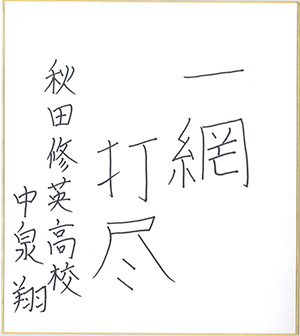 一網
打尽
秋田修英高校
中泉翔